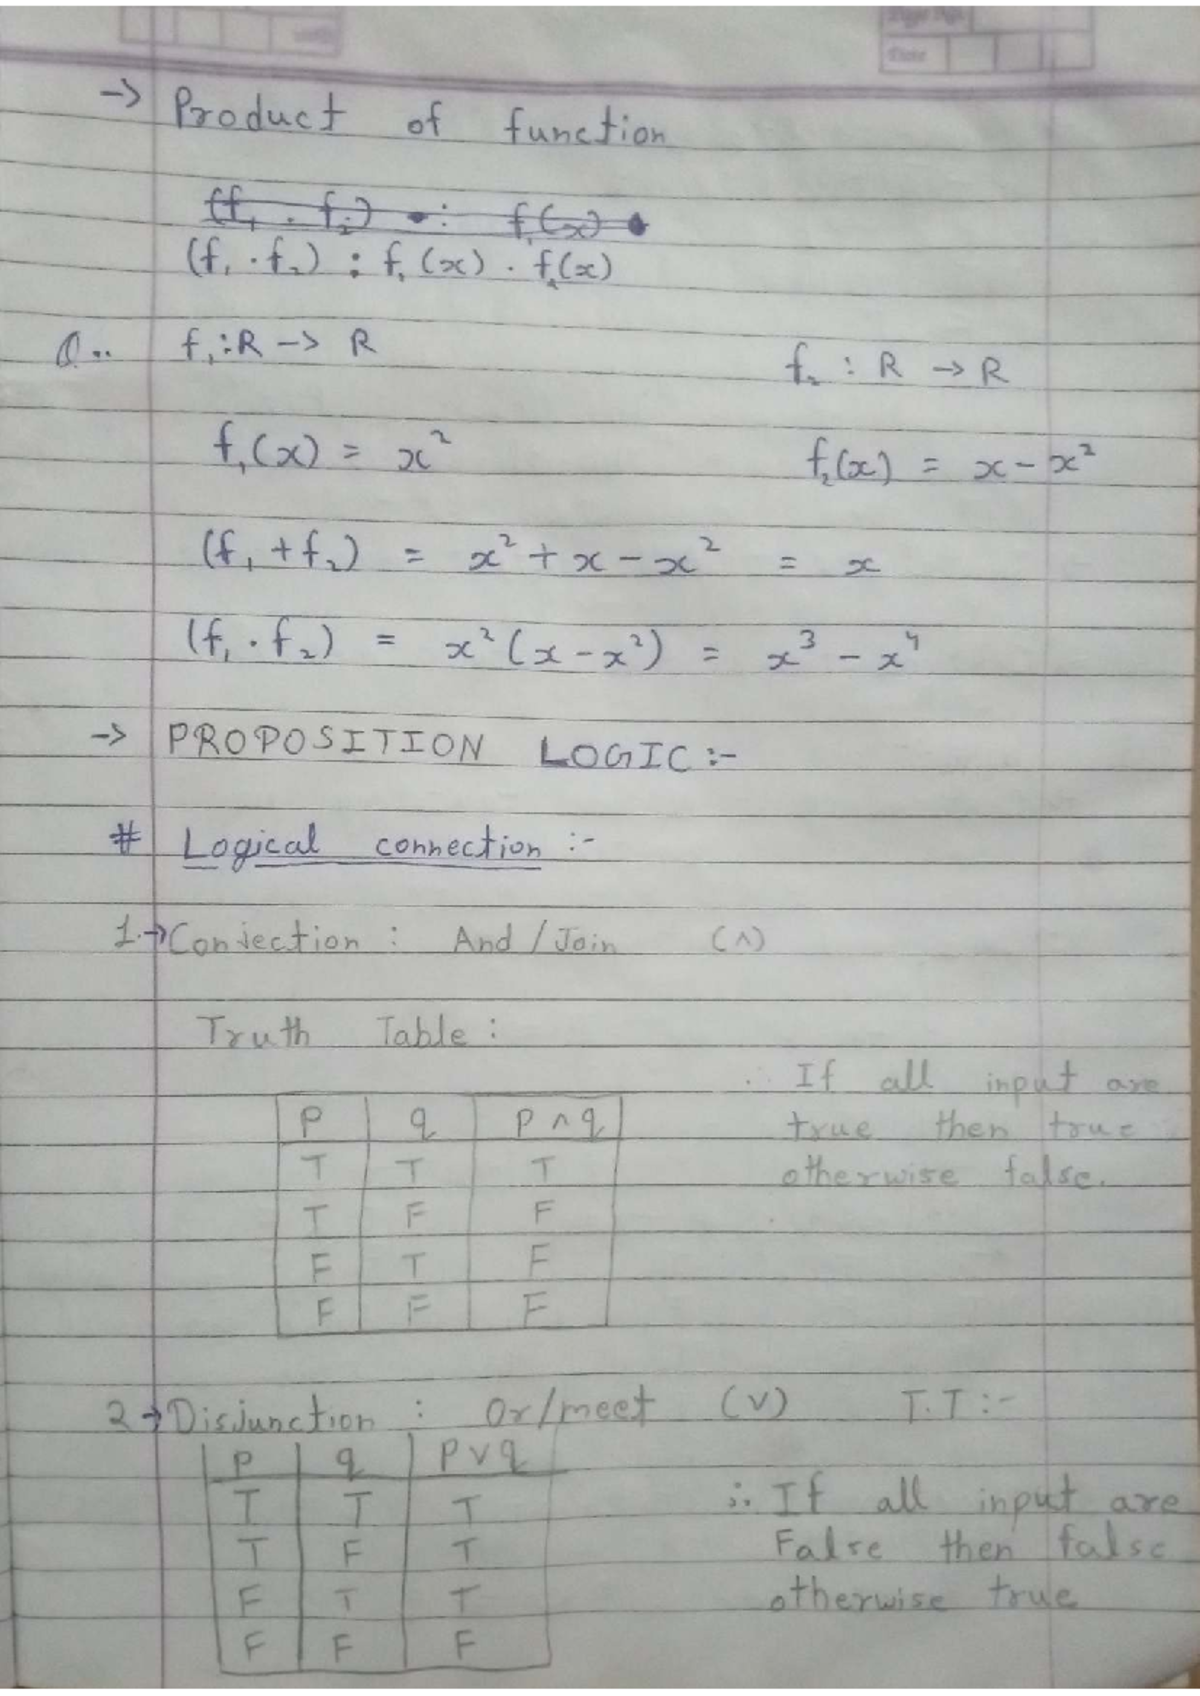 -> Product of function
(f₁ . f₂) : f₁(x)
(f₁ . f₂) : f₁(x) . f₂(x)
Q.. f₁ : R -> R f₂ : R -> R
f₁(x) = x² f₂(x) = x - x²
(f₁ + f₂) = x² + x - x² = x
(f₁ . f₂) = x² (x - x²) = x³ - x⁴
-> PROPOSITION LOGIC :-
# Logical connection :-
1.-> Conjection : And / Join (∧)
Truth Table :
∴ If all input are
true then true
otherwise false.
p q p ∧ q
T T T
T F F
F T F
F F F
2 -> Disjunction : Or/meet (∨) T.T :-
p q p ∨ q
T T T
T F T
F T T
F F F
∴ If all input are
False then false
otherwise true